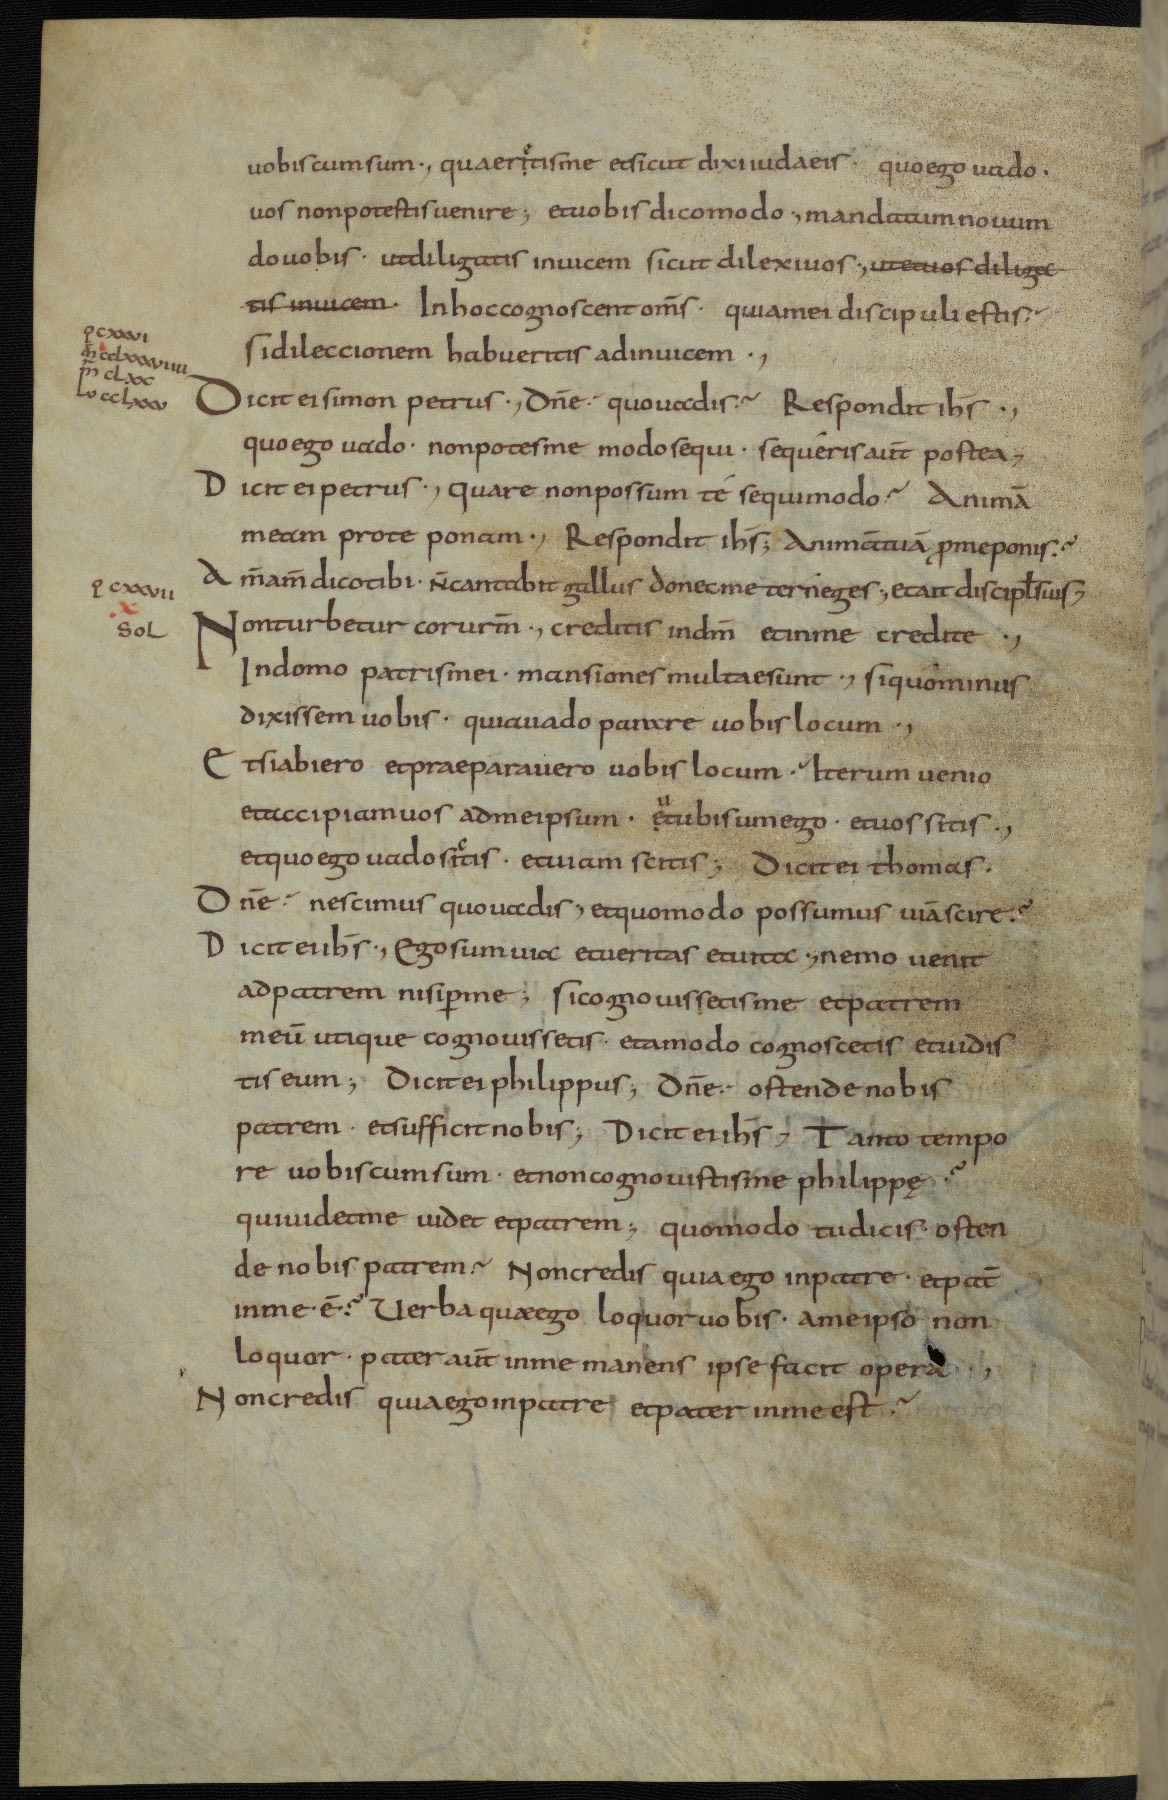 uobiscumsum·, quaeritisme etsicut dixi iudaeis· quo ego uado·
uos nonpotestis uenire; et uobis dico modo·, mandatum nouum
do uobis· ut diligatis inuicem sicut dilexi uos·, ut et uos diliga
tis inuicem· In hoc cognoscent om̄s· quia mei discipuli estis·
si dileccionem habueritis adinuicem·,
ꝑ cxxvi
m̄ cclxxxviiii
m̄ clxx
Lv cclxxv
Dicit ei simon petrus·, Dn̄e· quo uadis? Respondit ih̄s·,
quo ego uado· non potes me modo sequi· sequeris aut̄ postea;
Dicit ei petrus·, quare non possum te sequi modo? Animā
meam pro te ponam·, Respondit ih̄s; Animātuā ꝓme ponis?
Am̄ am̄ dico tibi· n̄ cantabit gallus donec me ter neges; et ait discipl̄ suis;
ꝑ cxxvii
x
Sol
Non turbetur cor ur̄m·, creditis in dm̄ et in me credite·,
In domo patris mei· mansiones multae sunt·, si quo minus
dixissem uobis· quia uado parare uobis locum·,
Et si abiero et praeparauero uobis locum· Iterum uenio
et accipiam uos ad me ipsum· et ubi sum ego· et uos sitis·,
et quo ego uado scitis· et uiam scitis; Dicit ei thomas·
Dn̄e· nescimus quo uadis; et quomodo possumus uiā scire?
Dicit ei ih̄s·, Ego sum uia et ueritas et uita·, nemo uenit
ad patrem nisi ꝑ me; si cognouissetis me et patrem
meū utique cognouissetis· et amodo cognoscetis et uidis
tis eum; Dicit ei philippus; Dn̄e· ostende nobis
patrem· et sufficit nobis; Dicit ei ih̄s; Tanto tempo
re uobiscum sum· et non cognouistis me philippę?
qui uidet me uidet et patrem; quomodo tu dicis· osten
de nobis patrem? Non credis quia ego in patre· et pat̄
in me· ē·? Uerba quae ego loquor uobis· a me ipso non
loquor· pater aut̄ in me manens ipse facit opera·,
Non credis quia ego in patre et pater in me est?